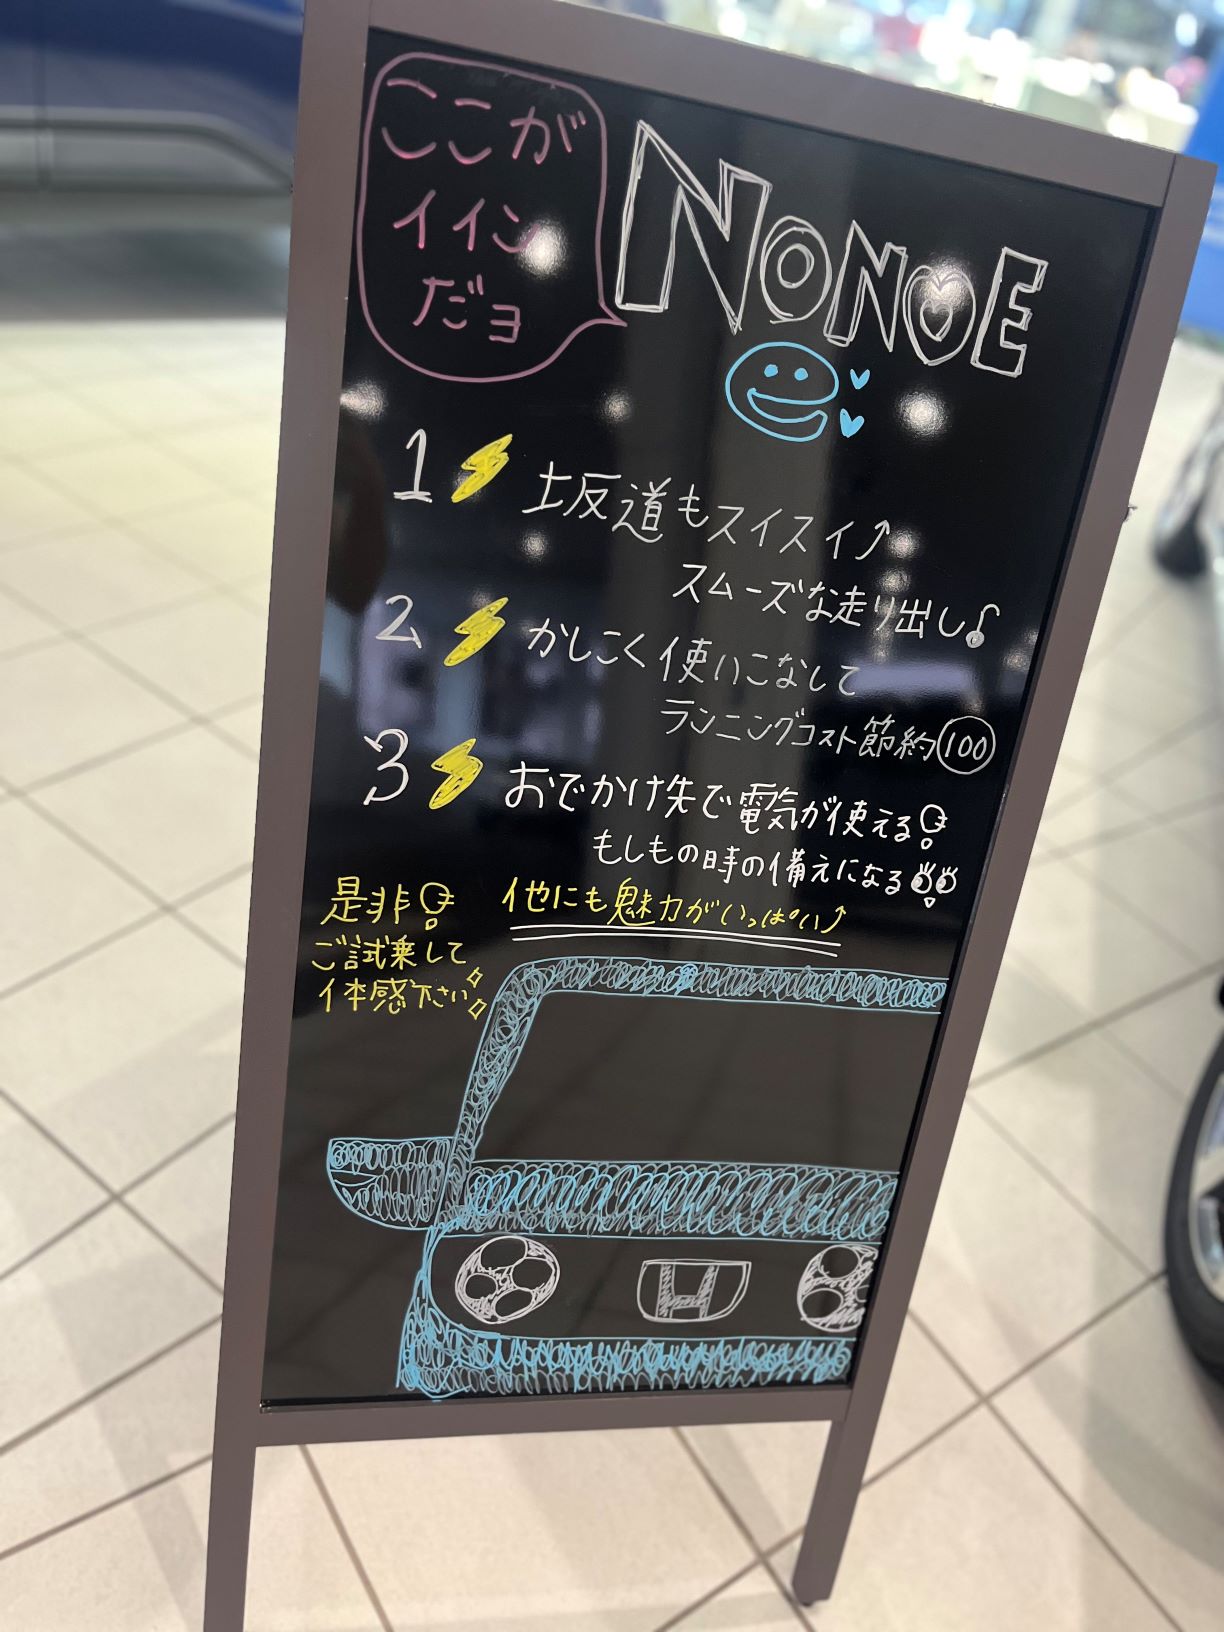 ここが
イイン
だヨ
NONOE
1 坂道もスイスイ↑
スムーズな走り出し♪
2 かしこく使いこなして
ランニングコスト節約100
3 おでかけ先で電気が使える!
もしもの時の備えになる!!
是非!
ご試乗して
体感下さい
他にも魅力がいっぱい↑
H